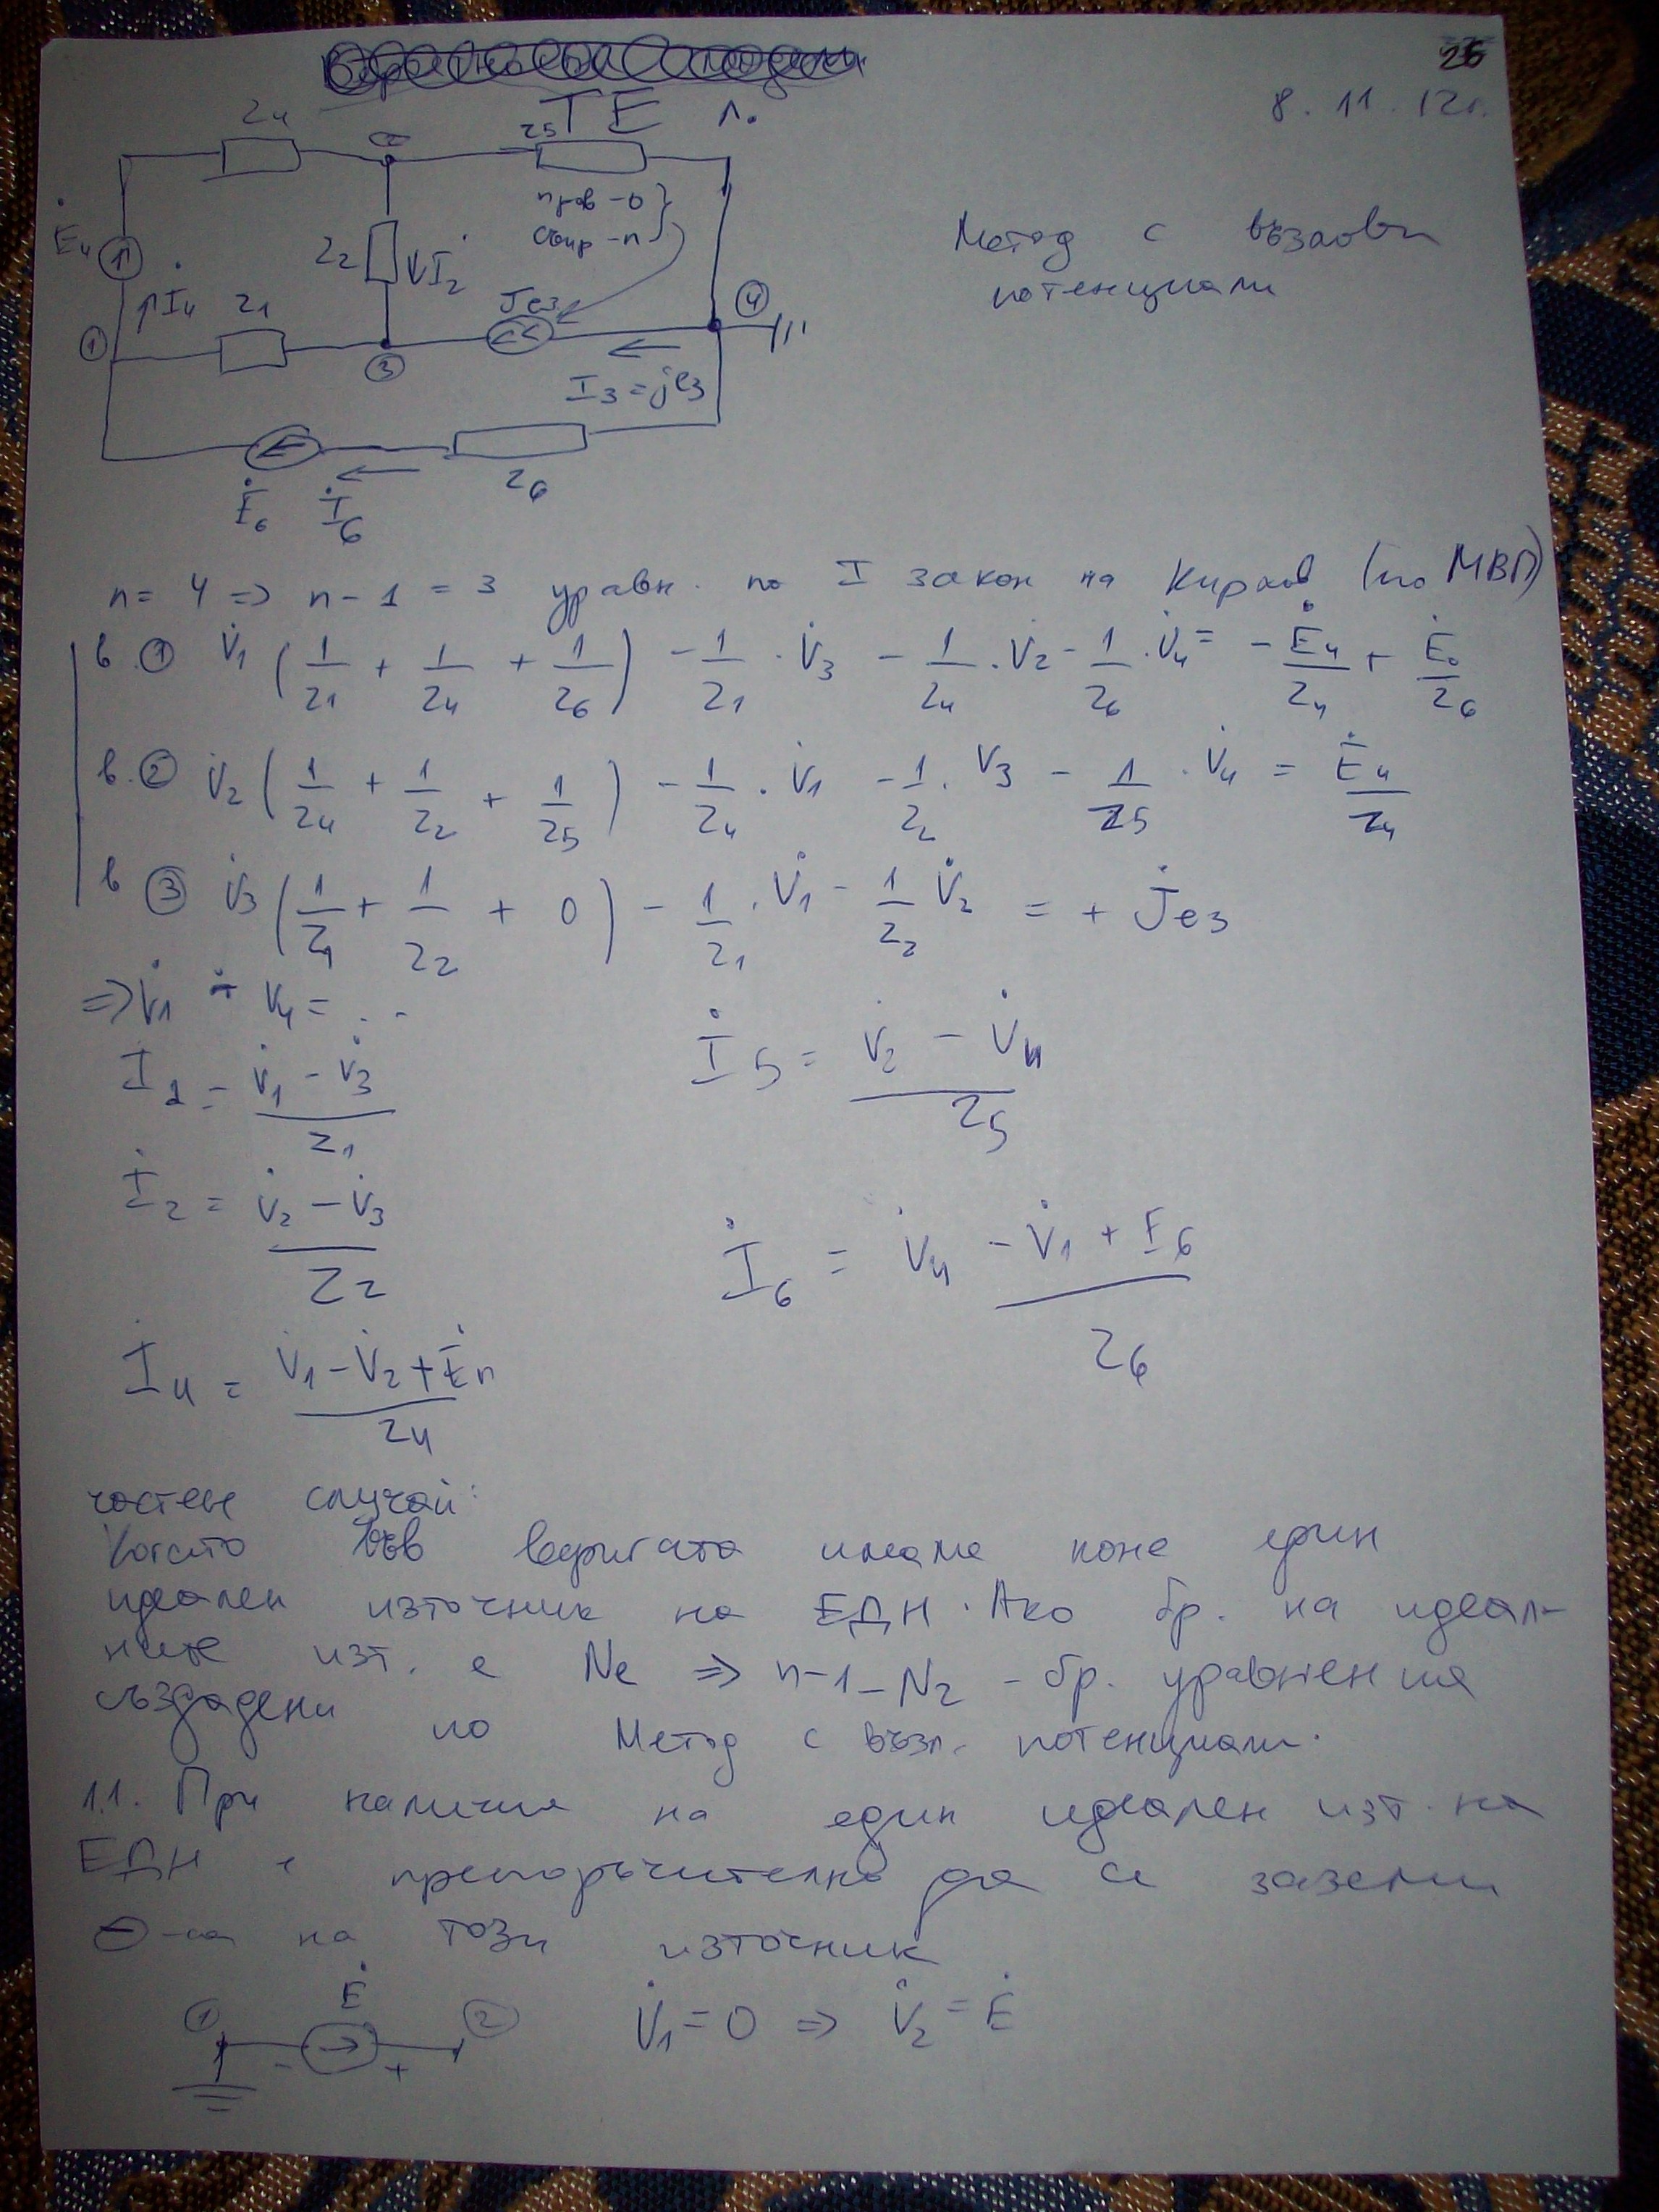 26
8.11.12г.
ТЕ л.
Метод с възлови
потенциали
Z4
Z5
пров-0
съпр-п
Ė4
İ4
Z2
İ2
Z1
Jез
1
3
4
I3 = jез
Ė6
İ6
Z6
n = 4 => n-1 = 3 уравн. по I закон на Кирхоф (по МВП)
в ① V̇1 (1/Z1 + 1/Z4 + 1/Z6) - 1/Z1 . V̇3 - 1/Z4 . V̇2 - 1/Z6 . V̇4 = - Ė4/Z4 + Ė6/Z6
в. ② V̇2 (1/Z4 + 1/Z2 + 1/Z5) - 1/Z4 . V̇1 - 1/Z2 . V3 - 1/Z5 . V̇4 = Ė4/Z4
в ③ V̇3 (1/Z1 + 1/Z2 + 0) - 1/Z1 . V̇1 - 1/Z2 V̇2 = + J̇ез
=> V̇1 ÷ V4 = ...
İ1 = (V̇1 - V̇3)/Z1
İ5 = (V̇2 - V̇4)/Z5
İ2 = (V̇2 - V̇3)/Z2
İ6 = (V̇4 - V̇1 + E6)/Z6
İ4 = (V̇1 - V̇2 + Ė4)/Z4
частен случай:
Когато във веригата имаме поне един
идеален източник на ЕДН. Ако бр. на идеал-
ните изт. е Ne => n-1-N2 - бр. уравнения
създадени по Метод с възл. потенциали.
1.1. При наличие на един идеален изт. на
ЕДН е препоръчително да се заземи
⊖-са на този източник
Ė
① - + ②
V̇1 = 0 => V̇2 = Ė